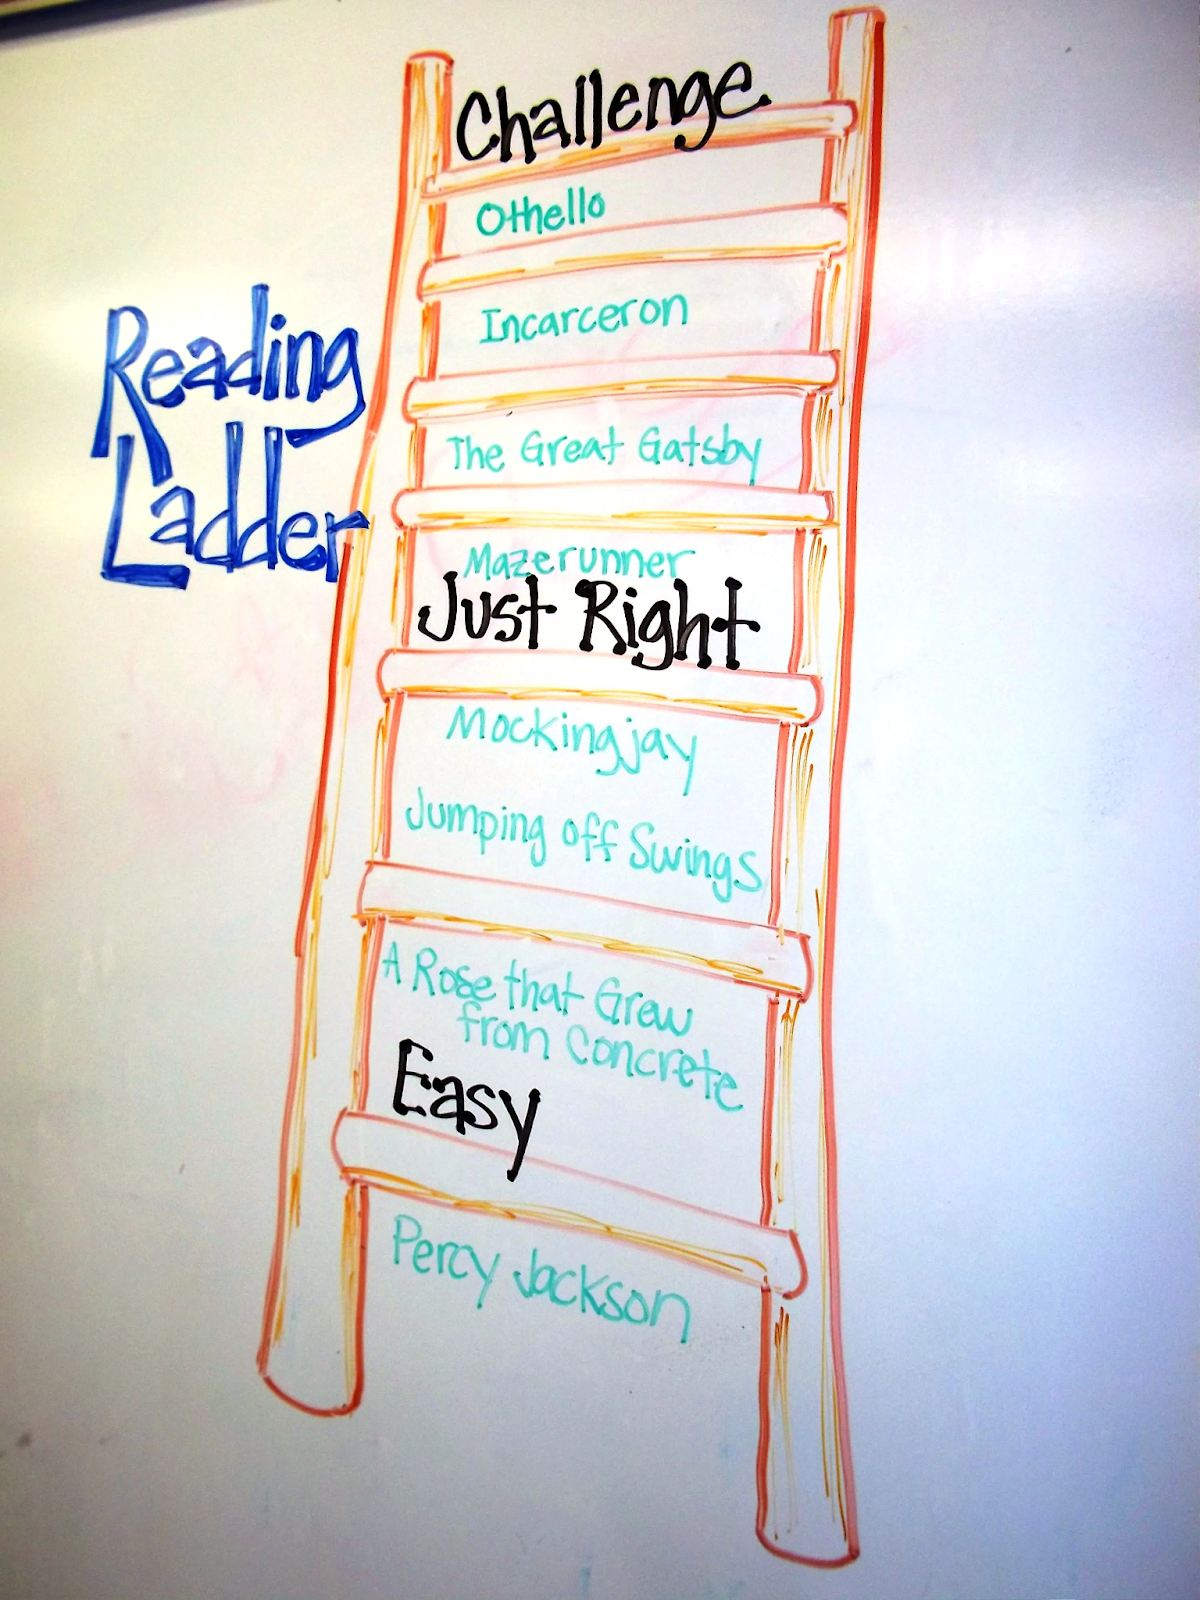 Challenge
Othello
Incarceron
Reading
Ladder
The Great Gatsby
Mazerunner
Just Right
Mockingjay
Jumping off Swings
A Rose that Grew
from Concrete
Easy
Percy Jackson